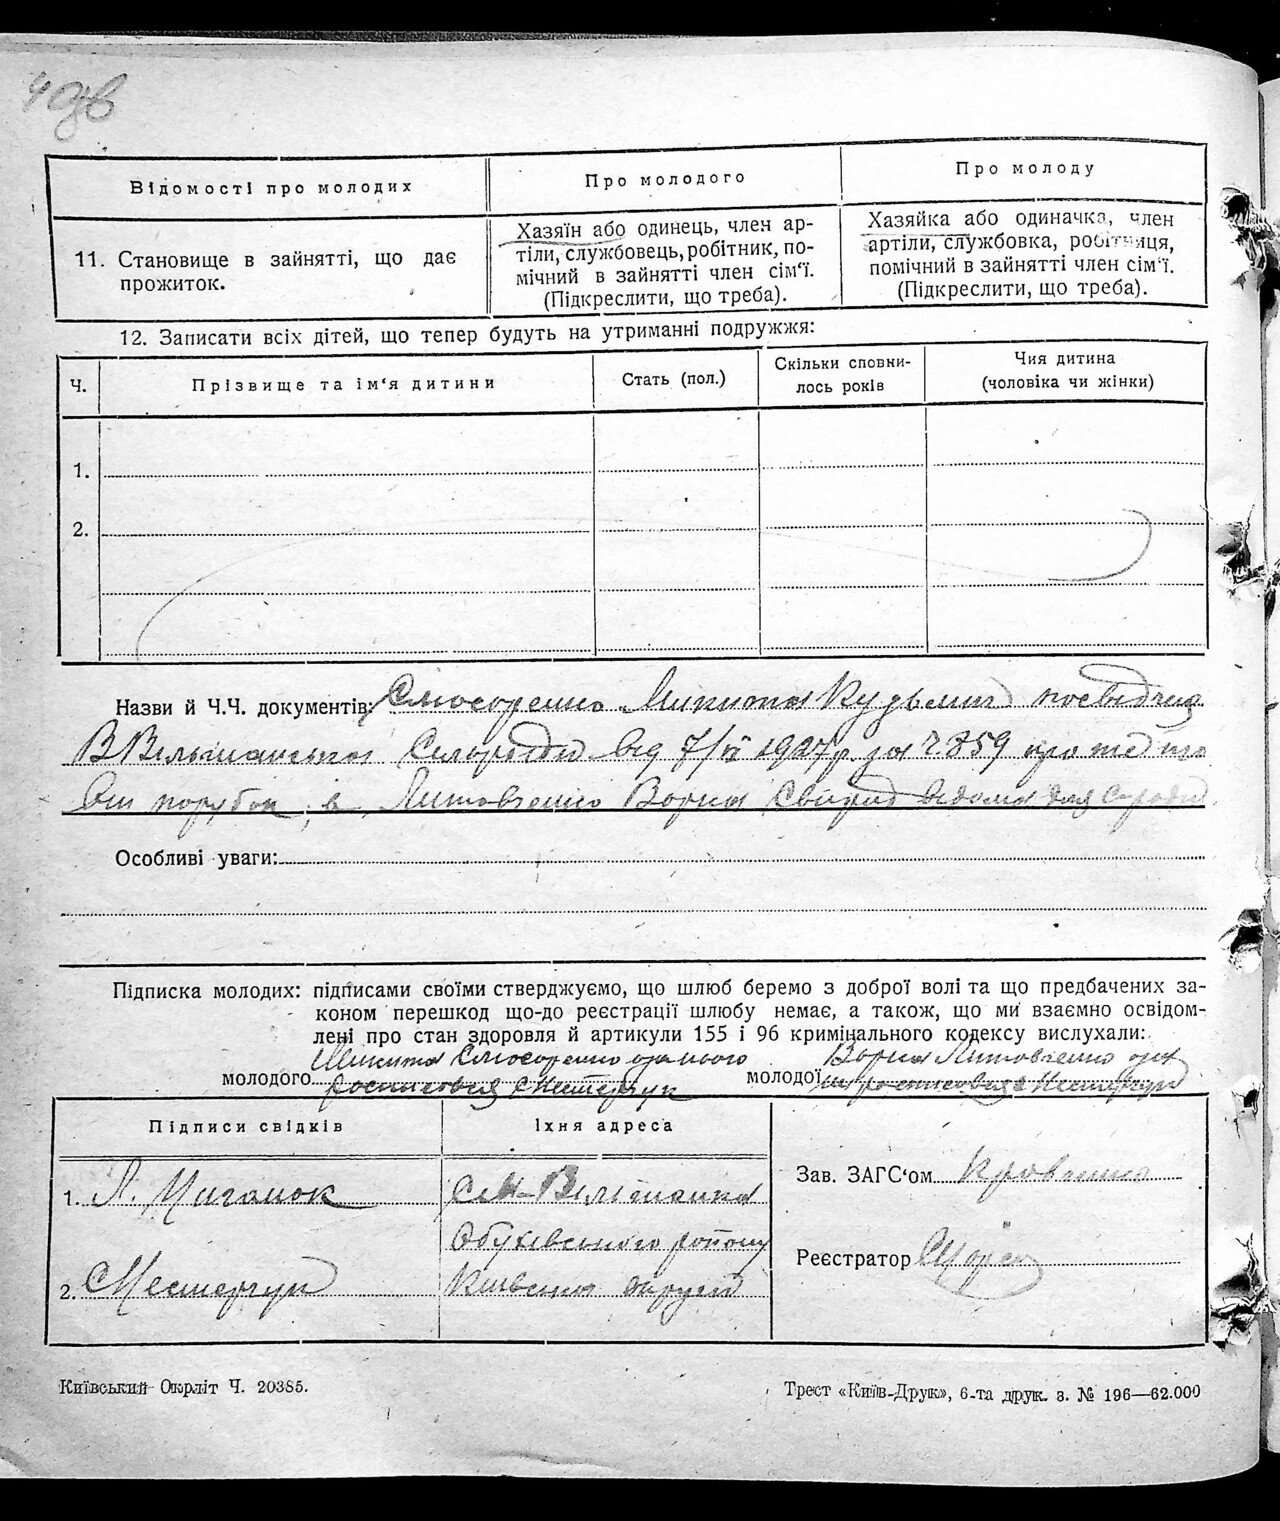 Відомості про молодих
Про молодого
Про молоду
11. Становище в зайнятті, що дає
прожиток.
Хазяїн або одинець, член ар-
тіли, службовець, робітник, по-
мічний в зайнятті член сім'ї.
(Підкреслити, що треба).
Хазяйка або одиначка, член
артіли, службовка, робітниця,
помічний в зайнятті член сім'ї.
(Підкреслити, що треба).
12. Записати всіх дітей, що тепер будуть на утриманні подружжя:
Ч.
Прізвище та ім'я дитини
Стать (пол.)
Скільки сповни-
лось років
Чия дитина
(чоловіка чи жінки)
1.
2.
Назви й Ч.Ч. документів: Слюсоренко Микита Кузьмич посвідчив
Сільради від 7/VI 1927 р. за Ч. 859 про те що
він порубок, в Литовченко Ворка відома для
Особливі уваги:
Підписка молодих: підписами своїми стверджуємо, що шлюб беремо з доброї волі та що предбачених за-
коном перешкод що-до реєстрації шлюбу немає, а також, що ми взаємно освідом-
лені про стан здоровля й артикули 155 і 96 кримінального кодексу вислухали:
молодого Микита Слюсоренко за нього
росписовся С Нестерчук
молодої Ворка Литовченко
росписовся С Нестерчук
Підписи свідків
Їхня адреса
1. Л. Циганок
Обухівського району
2. С Нестерчук
Київської округи
Зав. ЗАГС'ом
Реєстратор
Київський Окрліт Ч. 20385.
Трест «Київ-Друк», 6-та друк. з. № 196—62.000